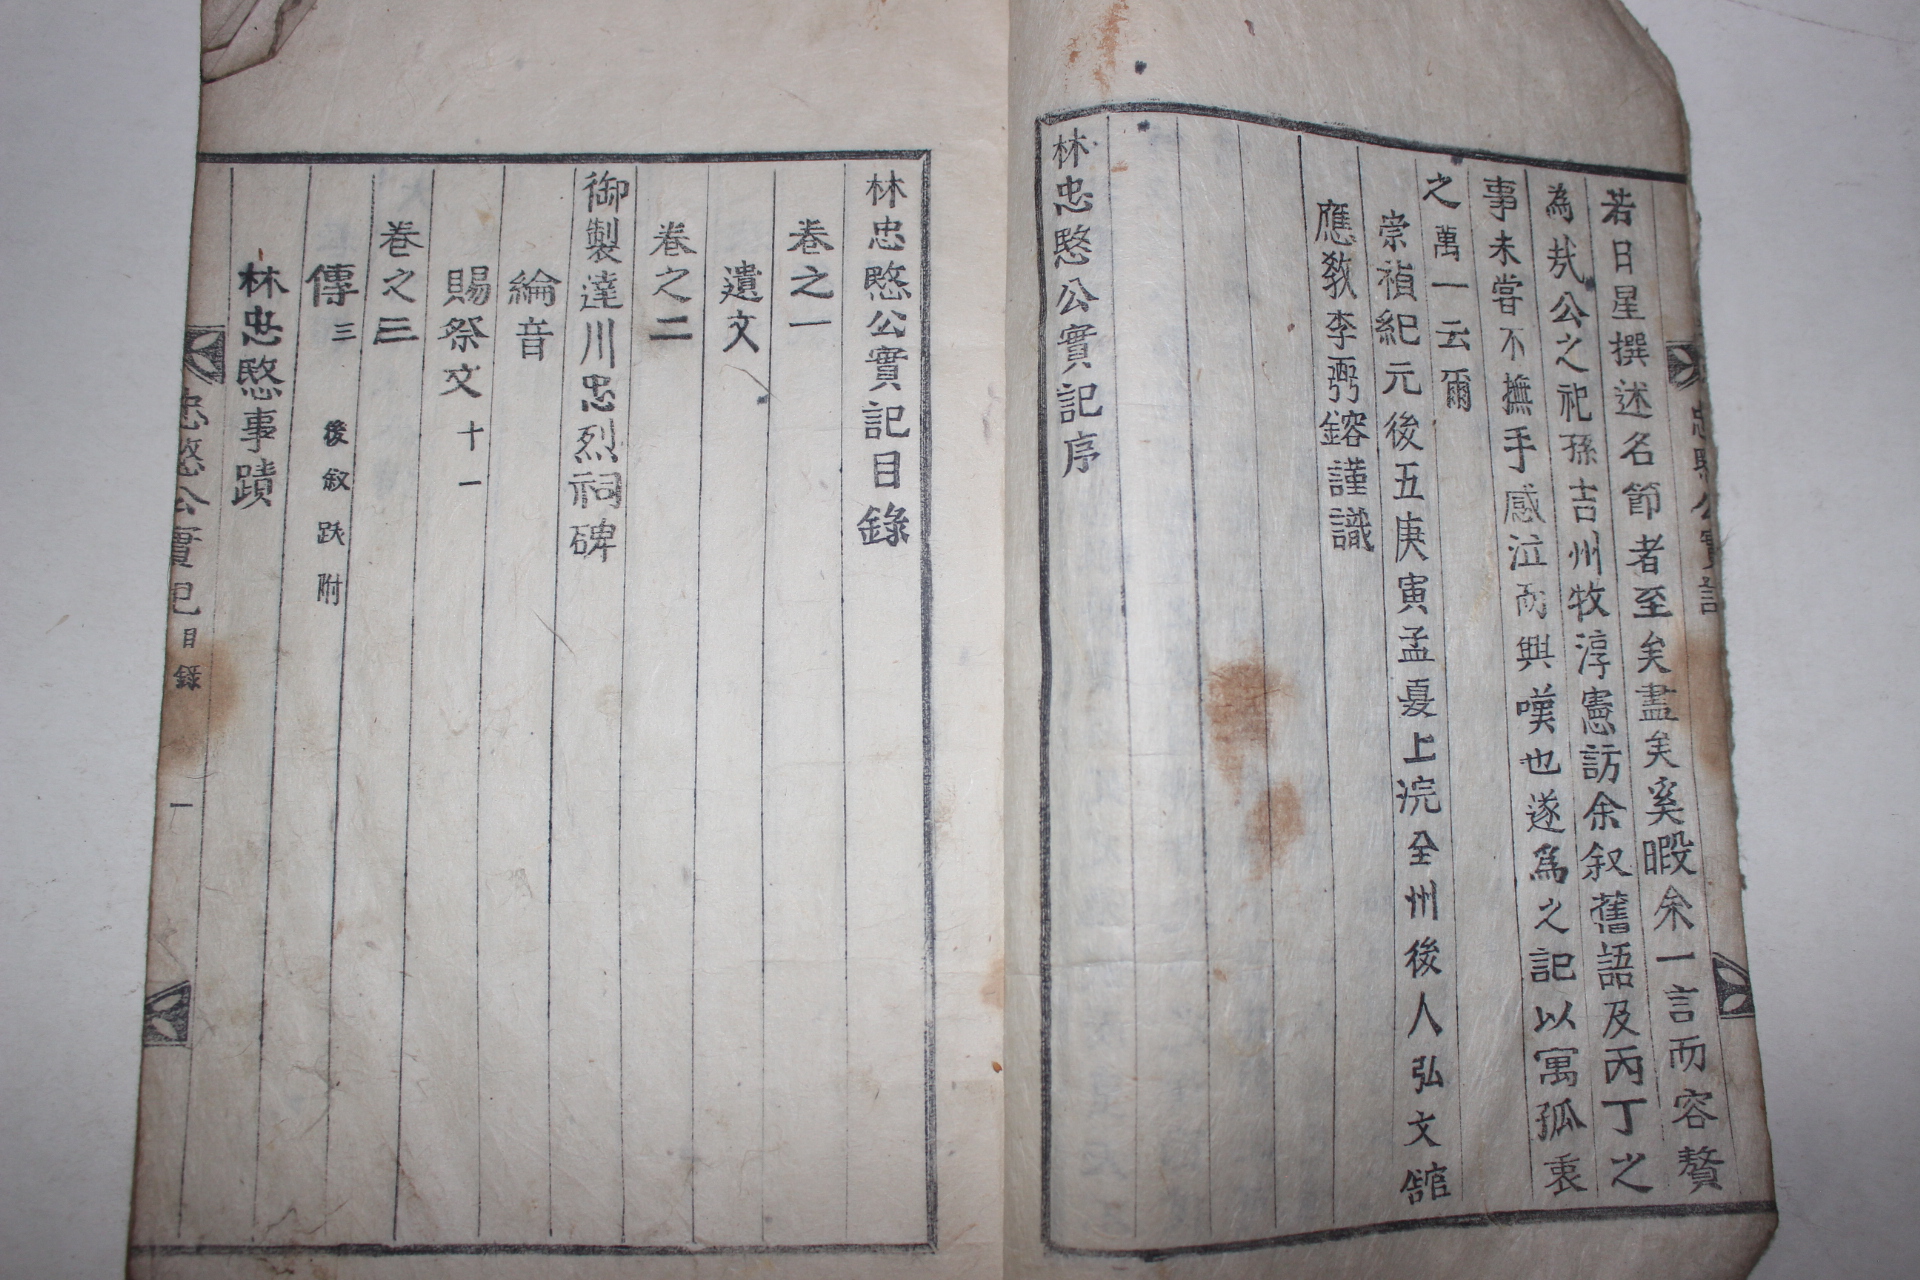 若日星撰述名節者至矣盡矣奚暇余一言而容贅
為哉公之祀孫吉州牧淳憲訪余叙舊語及丙丁之
事未嘗不撫手感泣而興嘆也遂爲之記以寓孤衷
之萬一云爾
崇禎紀元後五庚寅孟夏上浣全州後人弘文館
應敎李弼鎔謹識
林忠愍公實記序
林忠愍公實記目錄
卷之一
遺文
卷之二
御製達川忠烈祠碑
綸音
賜祭文 十一
卷之三
傳 三 後叙跋附
林忠愍事蹟
忠愍公實記 目錄 一